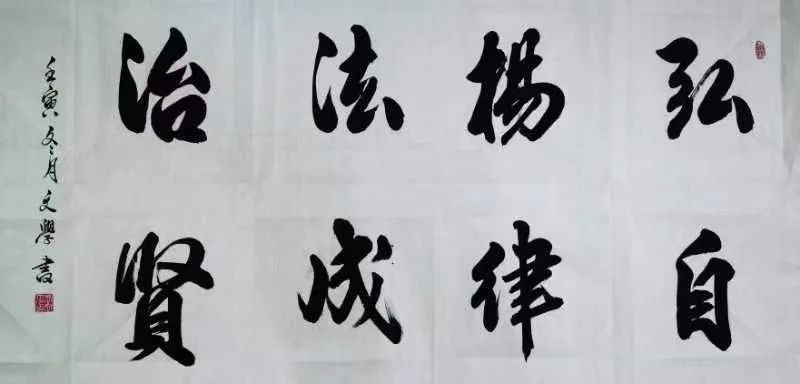 弘楊法治
自律成賢
壬寅冬月文學書